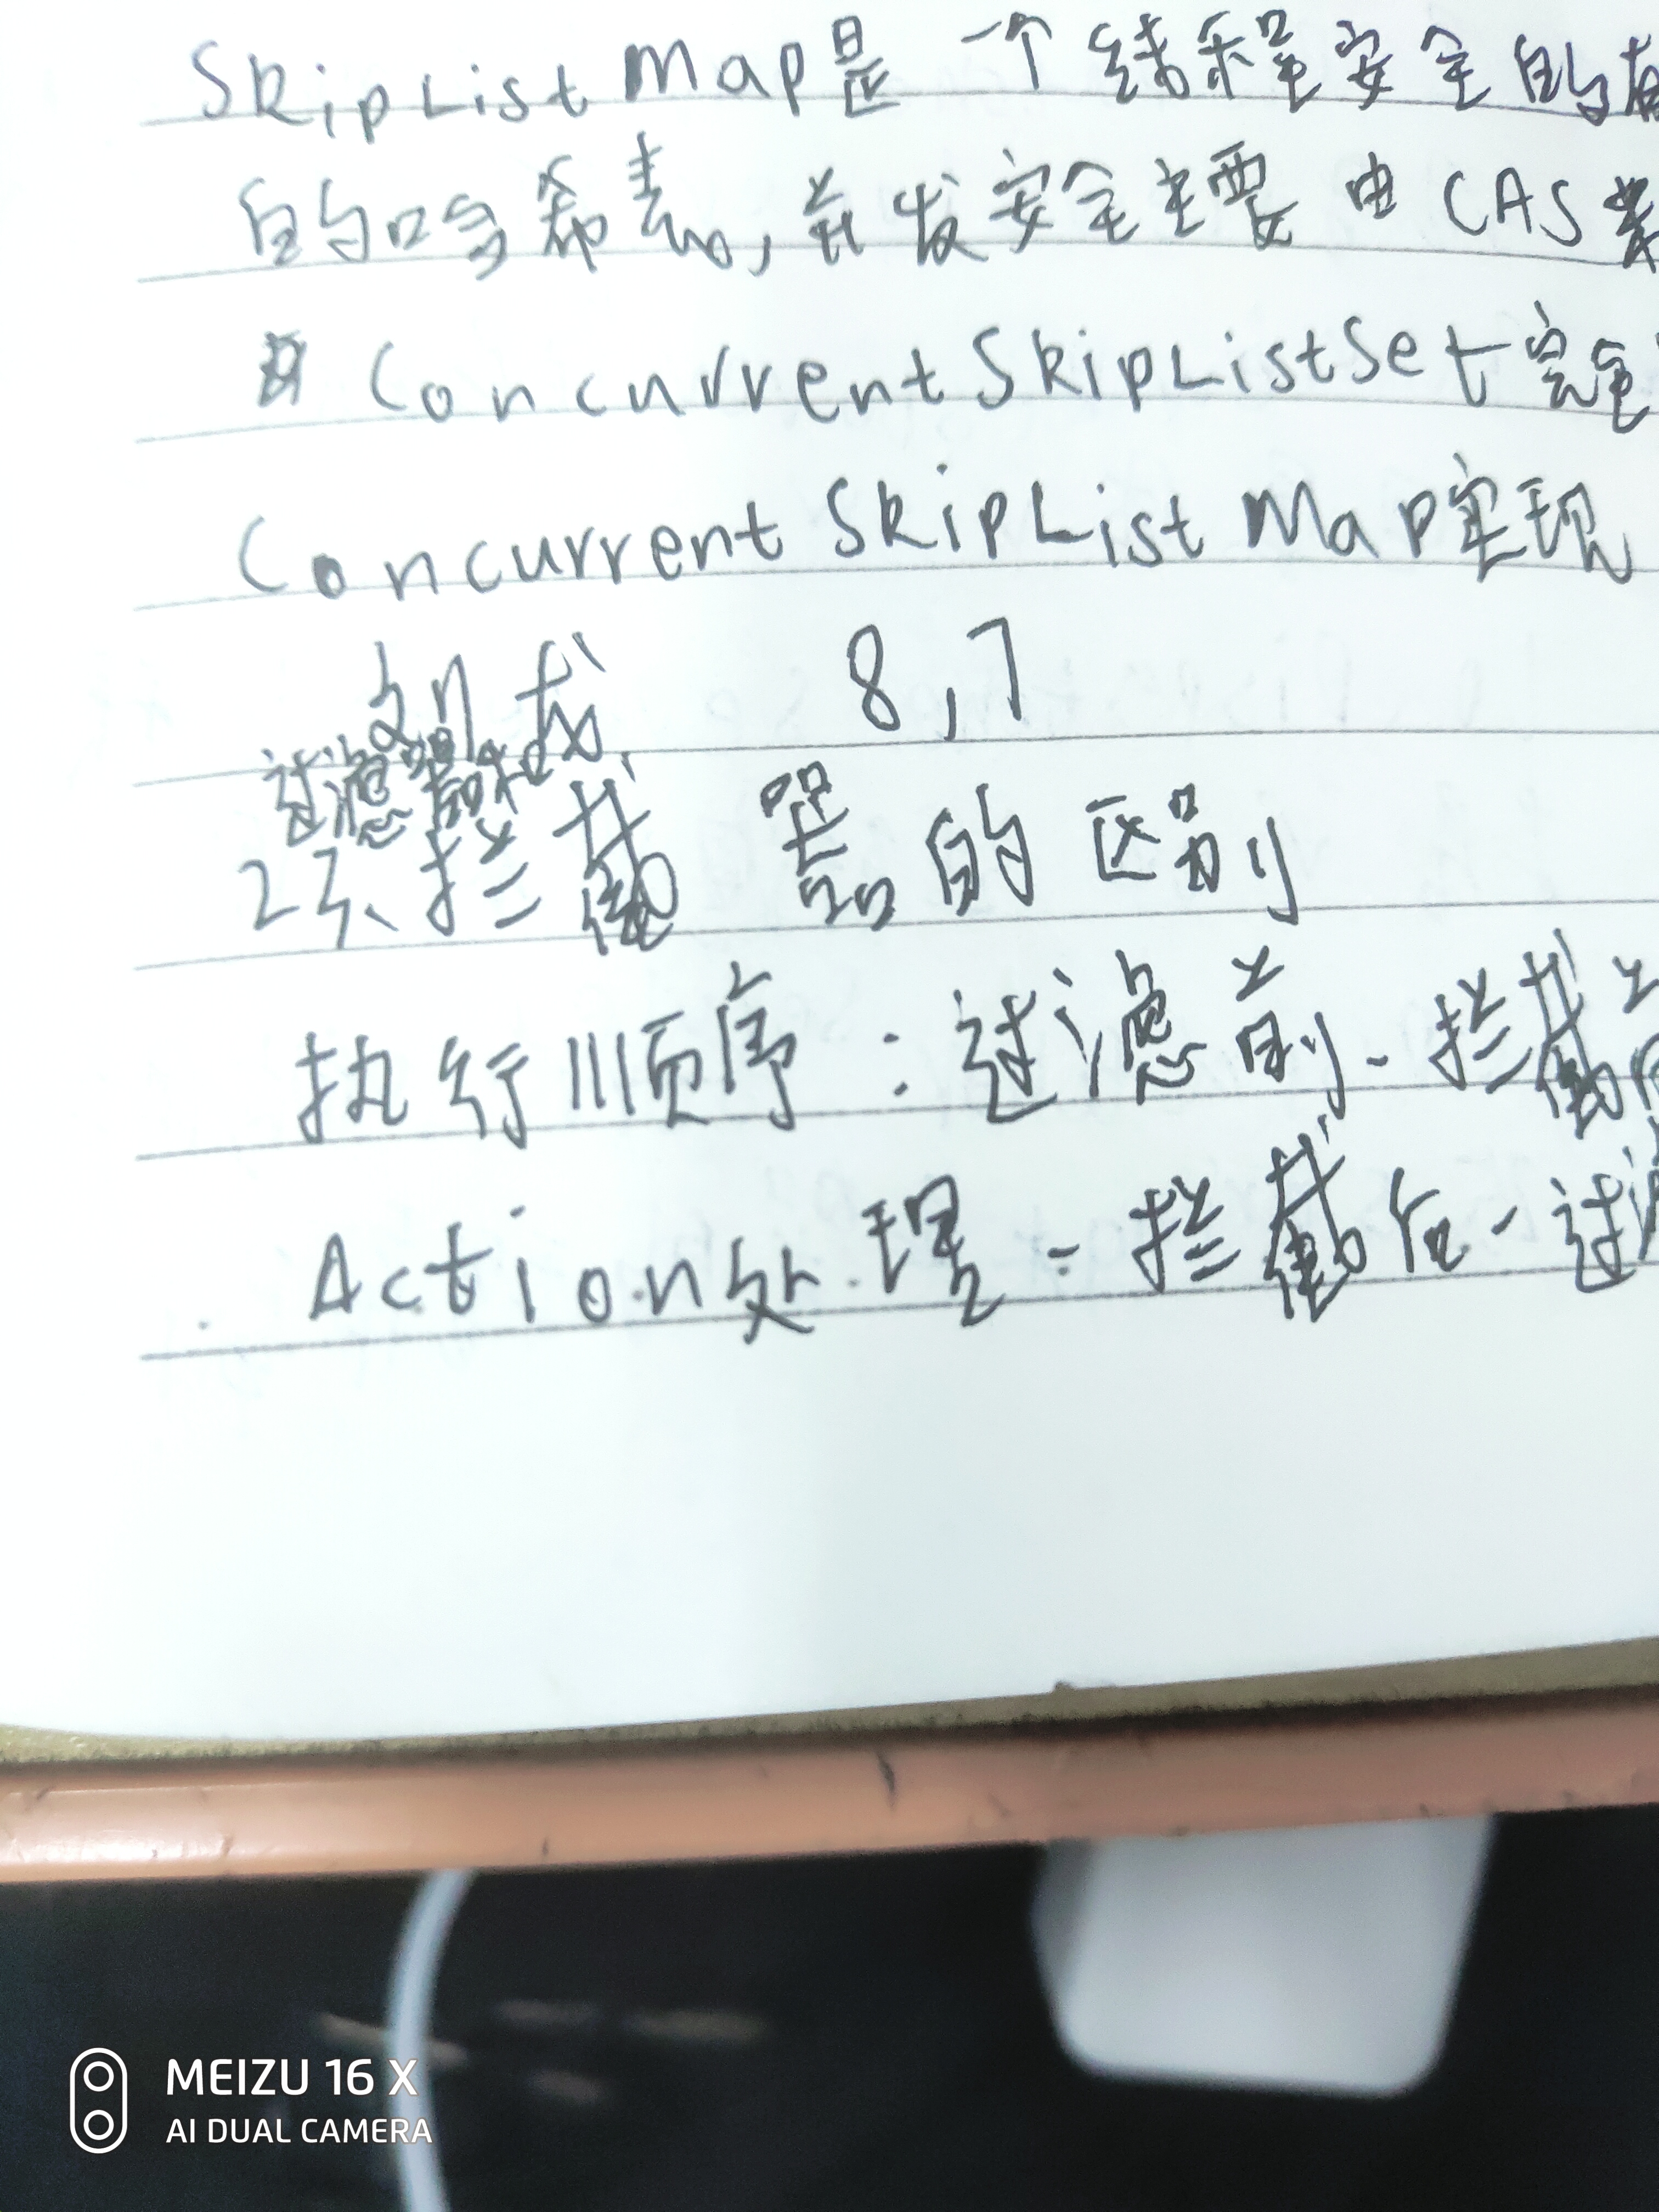 SkipListMap是一个线程安全的有
的哈希表,并发安全主要由CAS
ConcurrentSkipListSet完全
ConcurrentSkipListMap实现
8,7
过滤器和
23、拦截器的区别
执行顺序：过滤前-拦截前
Action处理-拦截后-过滤
MEIZU 16 X
AI DUAL CAMERA